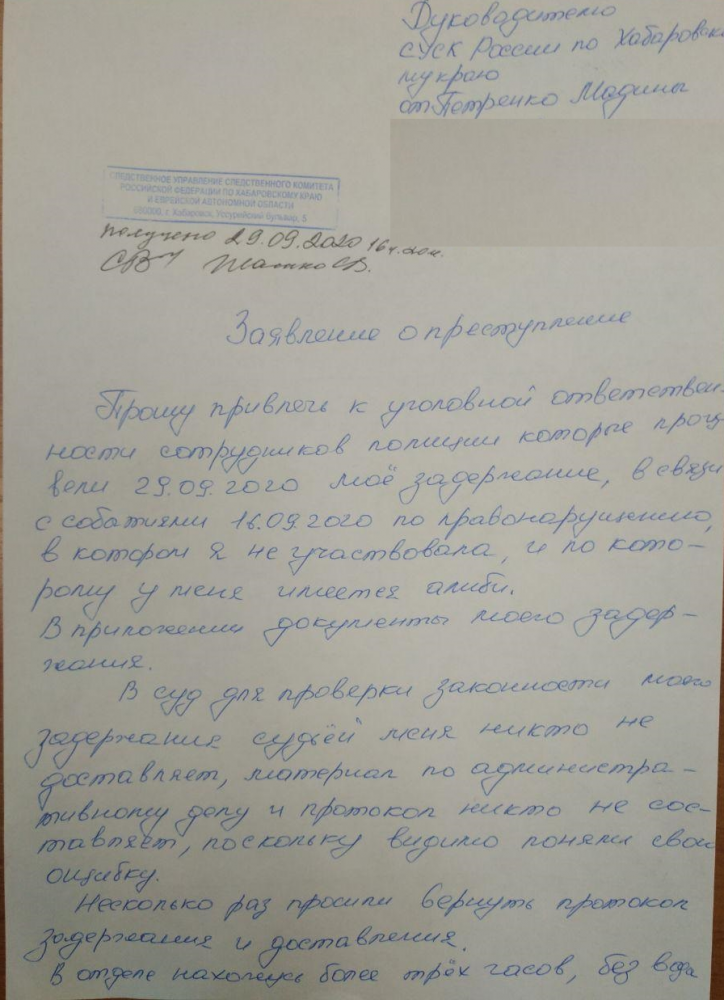 Руководителю
СУСК России по Хабаровско
му краю
от Петренко Мадины
СЛЕДСТВЕННОЕ УПРАВЛЕНИЕ СЛЕДСТВЕННОГО КОМИТЕТА
РОССИЙСКОЙ ФЕДЕРАЦИИ ПО ХАБАРОВСКОМУ КРАЮ
И ЕВРЕЙСКОЙ АВТОНОМНОЙ ОБЛАСТИ
680000, г. Хабаровск, Уссурийский бульвар, 5
получено 29.09.2020 16ч.
Заявление о преступление
Прошу привлечь к уголовной ответствен-
ности сотрудников полиции которые произ
вели 29.09.2020 моё задержание, в связи
с событиями 16.09.2020 по правонарушению,
в котором я не участвовала, и по кото-
рому у меня имеется алиби.
В приложении документы моего задер-
жания.
В суд для проверки законности моего
задержания судьёй меня никто не
доставляет, материал по администра-
тивному делу и протокол никто не сос-
тавляет, поскольку видимо поняли свою
ошибку.
Несколько раз просили вернуть протокол
задержания и доставления.
В отделе нахожусь более трёх часов, без воды